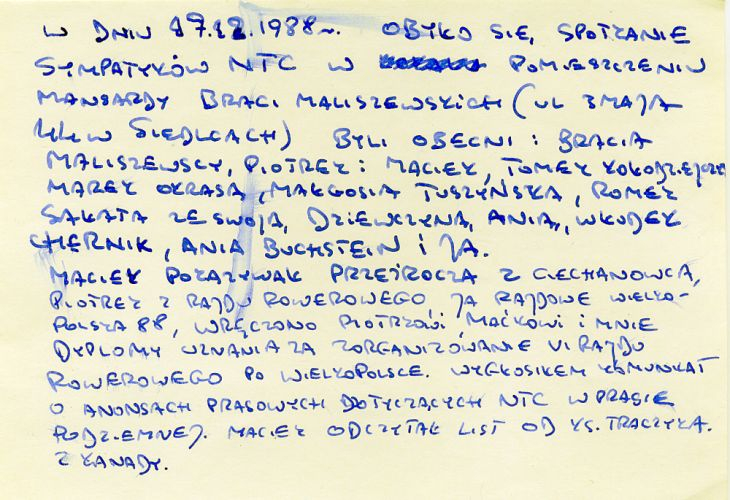 W DNIU 17.12.1988r. OBYŁO SIĘ SPOTKANIE
SYMPATYKÓW NTC W POMIESZCZENIU
MANSARDY BRACI MALISZEWSKICH (UL 3 MAJA
W SIEDLCACH) BYLI OBECNI: BRACIA
MALISZEWSCY, PIOTREK i MACIEK, TOMEK KOKODZIEJCZYK
MAREK OKRASA, MAŁGOSIA TUSZYŃSKA, ROMEK
SAKATA ZE SWOJĄ DZIEWCZYNĄ ANIĄ, WŁODEK
CHERNIK, ANIA BUCHSTEIN i JA.
MACIEK POKAZYWAŁ PRZEŹROCZA Z CIECHANOWCA,
PIOTREK Z RAJDU ROWEROWEGO, JA RAJDOWE WIELKO-
POLSKA 88, WRĘCZONO PIOTRKOWI, MAĆKOWI i MNIE
DYPLOMY UZNANIA ZA ZORGANIZOWANIE VI RAJDU
ROWEROWEGO PO WIELKOPOLSCE. WYGŁOSIŁEM KOMUNIKAT
O ANONSACH PRASOWYCH DOTYCZĄCYCH NTC W PRASIE
PODZIEMNEJ. MACIEK ODCZYTAŁ LIST OD KS. TRACZYKA.
Z KANADY.